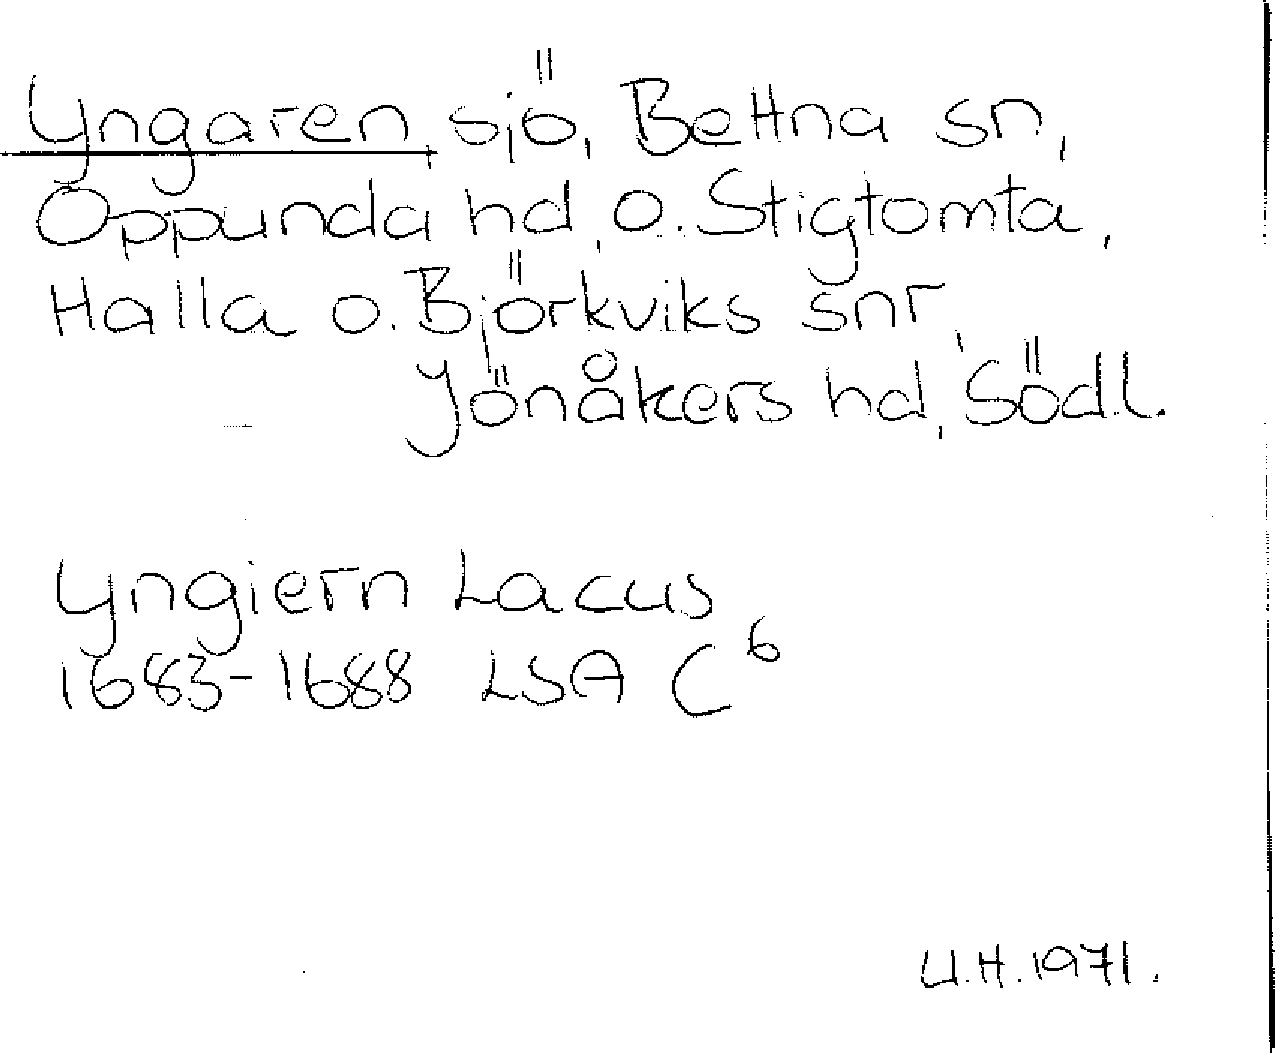 Yngaren sjö, Bettna sn,
Oppunda hd, o. Stigtomta,
Halla o. Björkviks snr,
Jönåkers hd, Södl.
Yngiern Lacus
1683-1688 LSA C⁶
U.H. 1971.